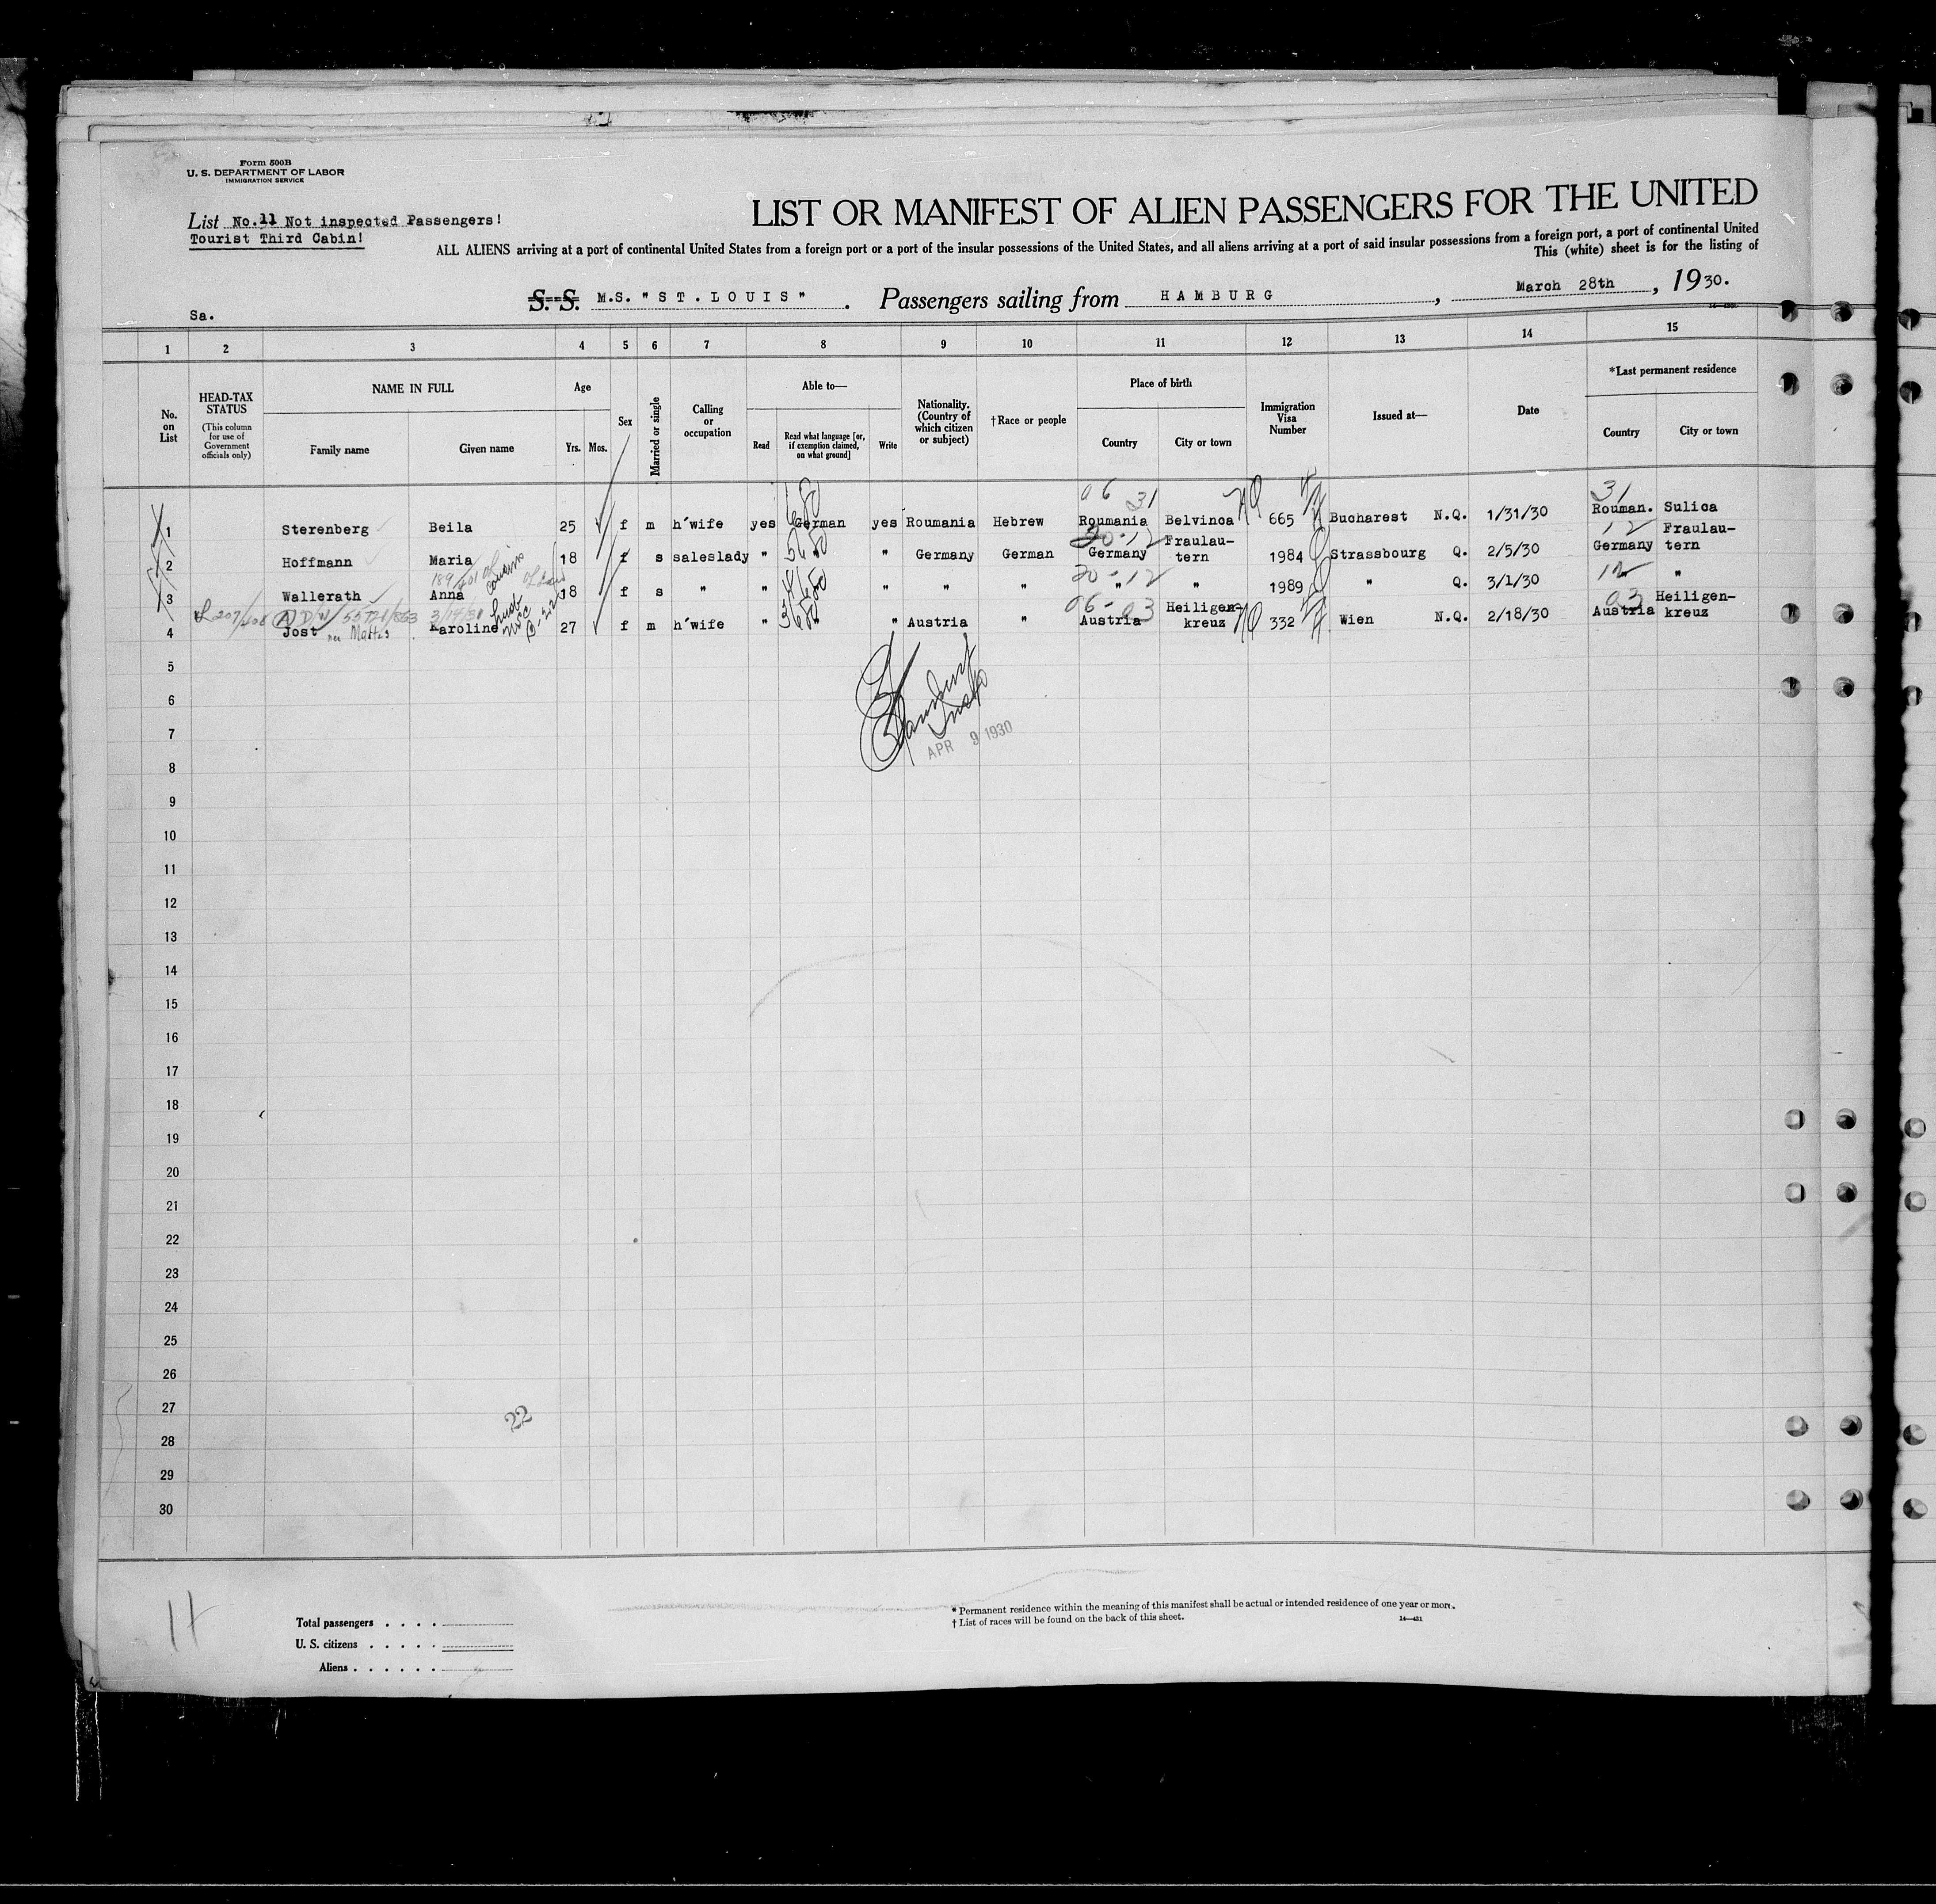 Form 500B
U. S. DEPARTMENT OF LABOR
IMMIGRATION SERVICE
List No.11 Not inspected Passengers!
Tourist Third Cabin!
LIST OR MANIFEST OF ALIEN PASSENGERS FOR THE UNITED
ALL ALIENS arriving at a port of continental United States from a foreign port or a port of the insular possessions of the United States, and all aliens arriving at a port of said insular possessions from a foreign port, a port of continental United
This (white) sheet is for the listing of
Sa.
S. S. M.S. "ST.LOUIS" . Passengers sailing from HAMBURG , March 28th , 1930.
1 2 3 4 5 6 7 8 9 10 11 12 13 14 15
No. on List
HEAD-TAX STATUS
(This column for use of Government officials only)
NAME IN FULL
Family name Given name
Age
Yrs. Mos.
Sex
Married or single
Calling or occupation
Able to—
Read Read what language [or, if exemption claimed, on what ground] Write
Nationality. (Country of which citizen or subject)
†Race or people
Place of birth
Country City or town
Immigration Visa Number
Issued at—
Date
*Last permanent residence
Country City or town
06 31 31
1 Sterenberg Beila 25 f m h'wife yes German yes Roumania Hebrew Roumania Belvinca 665 Bucharest N.Q. 1/31/30 Rouman. Sulica
30-12 12
2 Hoffmann Maria 18 f s saleslady " " " Germany German Germany Fraulau-tern 1984 Strassbourg Q. 2/5/30 Germany Fraulau-tern
20-12 12
3 Wallerath Anna 18 f s " " " " " " " 1989 " Q. 3/1/30 "
06-03 03
4 Jost Karoline 27 f m h'wife " " " Austria " Austria Heiligen-kreuz 332 Wien N.Q. 2/18/30 Austria Heiligen-kreuz
5
6
7
APR 9 1930
8
9
10
11
12
13
14
15
16
17
18
19
20
21
22
23
24
25
26
27
22
28
29
30
11
Total passengers . . . .
U. S. citizens . . . . .
Aliens . . . . . .
* Permanent residence within the meaning of this manifest shall be actual or intended residence of one year or more.
† List of races will be found on the back of this sheet.
14—421